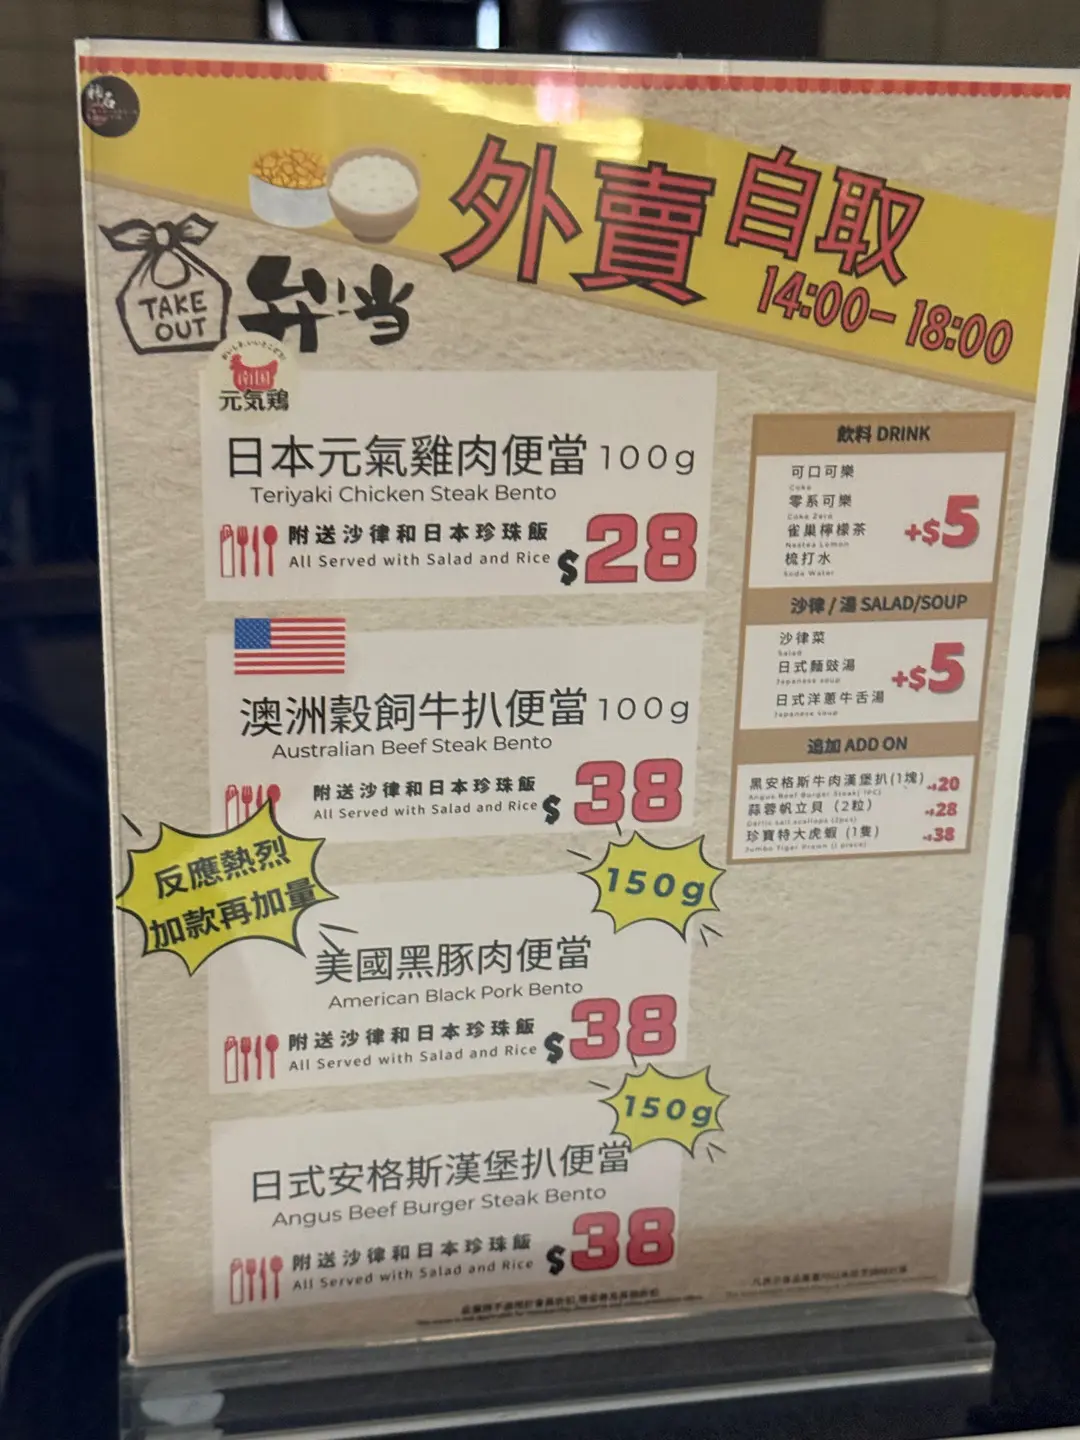 外賣自取
14:00-18:00
TAKE
OUT
弁当
南国
元気鶏
日本元氣雞肉便當 100g
Teriyaki Chicken Steak Bento
附送沙律和日本珍珠飯
All Served with Salad and Rice
$28
澳洲穀飼牛扒便當 100g
Australian Beef Steak Bento
附送沙律和日本珍珠飯
All Served with Salad and Rice
$38
反應熱烈
加款再加量
150g
美國黑豚肉便當
American Black Pork Bento
附送沙律和日本珍珠飯
All Served with Salad and Rice
$38
150g
日式安格斯漢堡扒便當
Angus Beef Burger Steak Bento
附送沙律和日本珍珠飯
All Served with Salad and Rice
$38
飲料 DRINK
可口可樂
Coke
零系可樂
Coke Zero
雀巢檸檬茶
Nestea Lemon
梳打水
Soda Water
+$5
沙律 / 湯 SALAD/SOUP
沙律菜
Salad
日式麵豉湯
Japanese soup
日式洋蔥牛舌湯
Japanese soup
+$5
追加 ADD ON
黑安格斯牛肉漢堡扒(1塊)
Angus Beef Burger Steak(1PC)
+$20
蒜蓉帆立貝 (2粒)
Garlic sail scallops (2pcs)
+$28
珍寶特大虎蝦 (1隻)
Jumbo Tiger Prawn (1 piece)
+$38